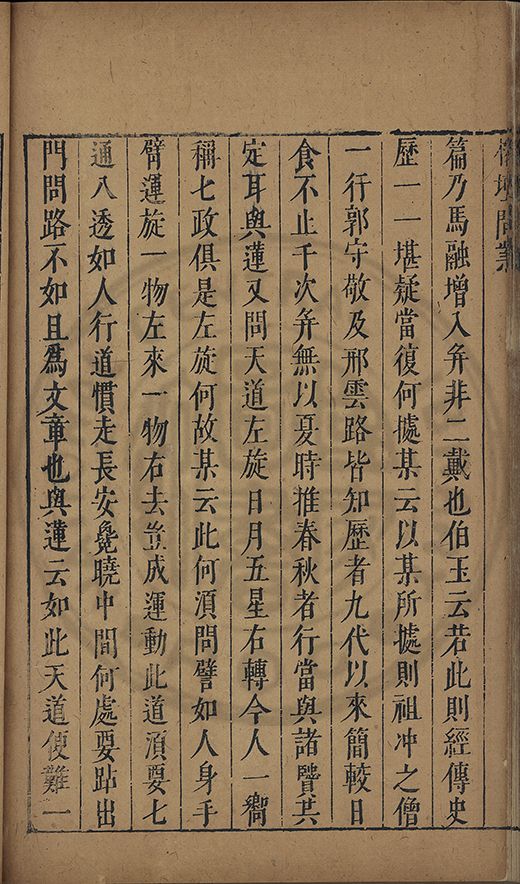 榕壇問業
篇乃馬融增入弁非二戴也伯玉云若此則經傳史
歷一一堪疑當復何據某云以某所據則祖冲之僧
一行郭守敬及邢雲路皆知歷者九代以來簡較日
食不止千次弁無以夏時推春秋者行當與諸賢共
定耳與蓮又問天道左旋日月五星右轉今人一嚮
稱七政俱是左旋何故某云此何須問譬如人身手
臂運旋一物左來一物右去豈成運動此道須要七
通八透如人行道慣走長安髠曉中間何處要跕出
門問路不如且爲文章也與蓮云如此天道便難一